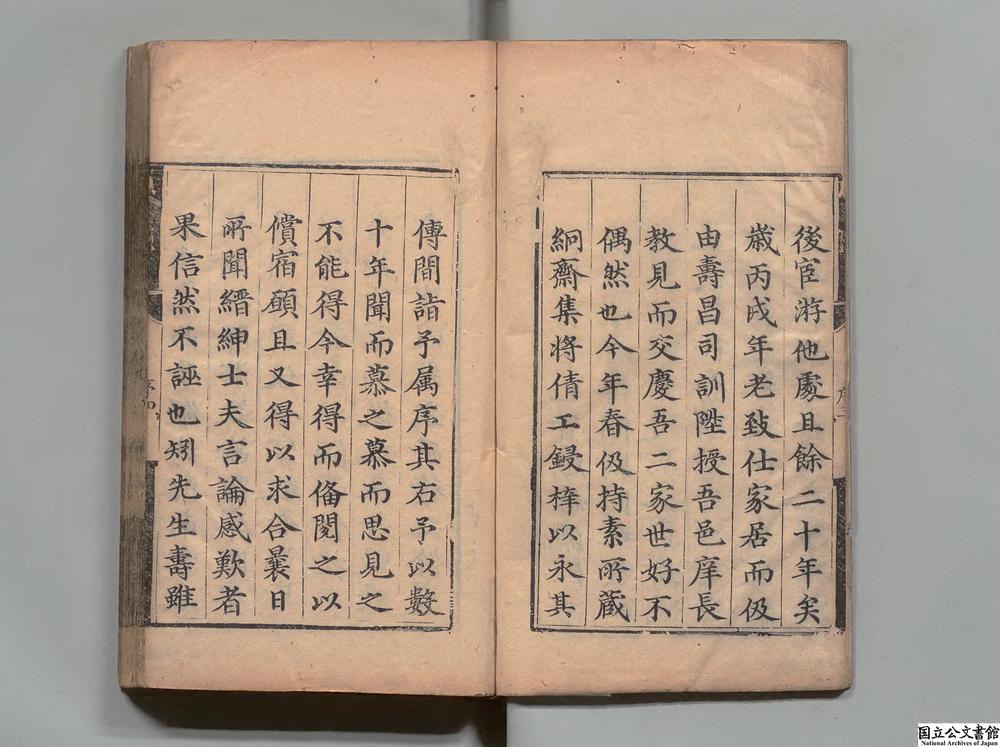 後宦游他處且餘二十年矣
歳丙戌年老致仕家居而伋
由壽昌司訓陞授吾邑庠長
教見而交慶吾二家世好不
偶然也今年春伋持素所藏
絅齋集將倩工鋟梓以永其
傳間詣予属序其右予以數
十年聞而慕之慕而思見之
不能得今幸得而偹閱之以
償宿願且又得以求合曩日
所聞縉紳士夫言論感歎者
果信然不誣也矧先生壽雖
国立公文書館
National Archives of Japan